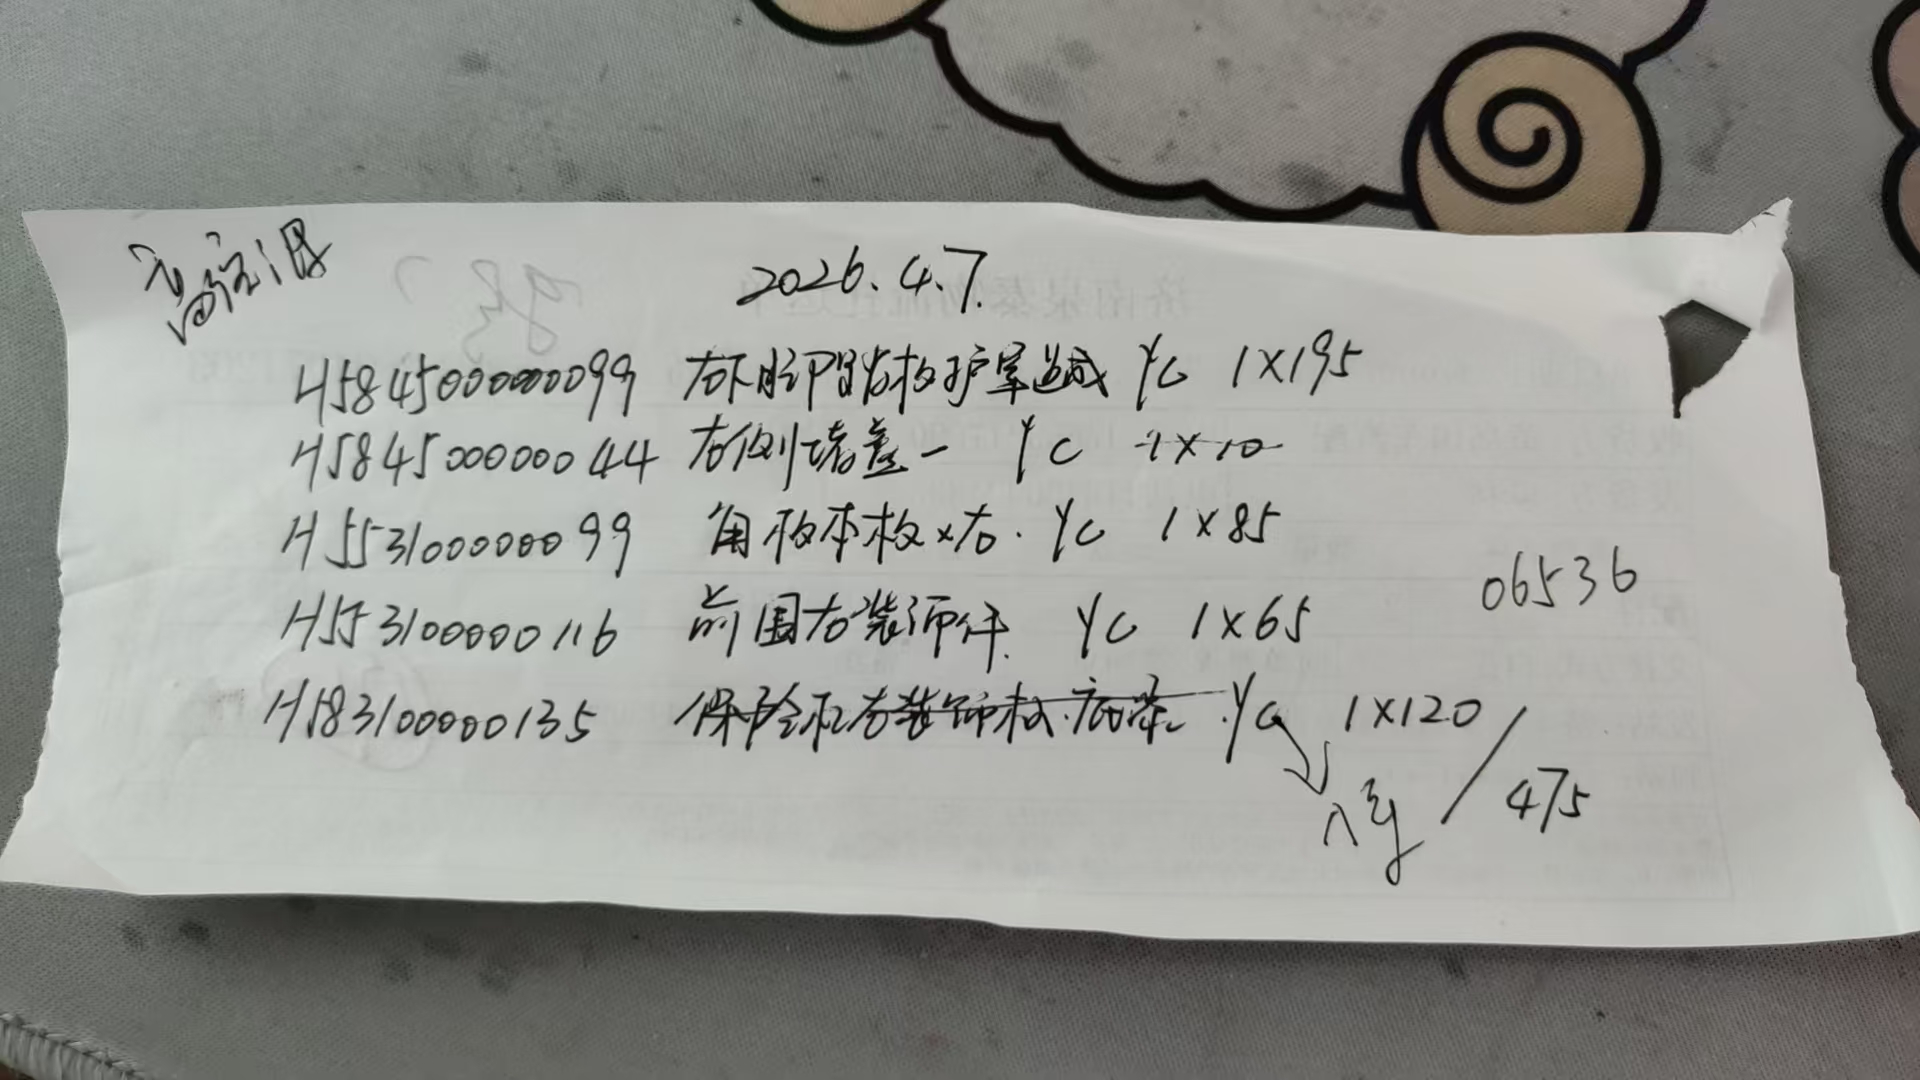 2026.4.7.
H5845000000099 右下脚踏板护罩总成 YC 1×195
H5845000000044 右侧堵盖一 YC 1×10
H5531000000099 角板本板×右. YC 1×85
H5531000000116 前围右装饰件. YC 1×65
06536
H583100000135 保险杠右装饰板.底漆 YC 1×120
475